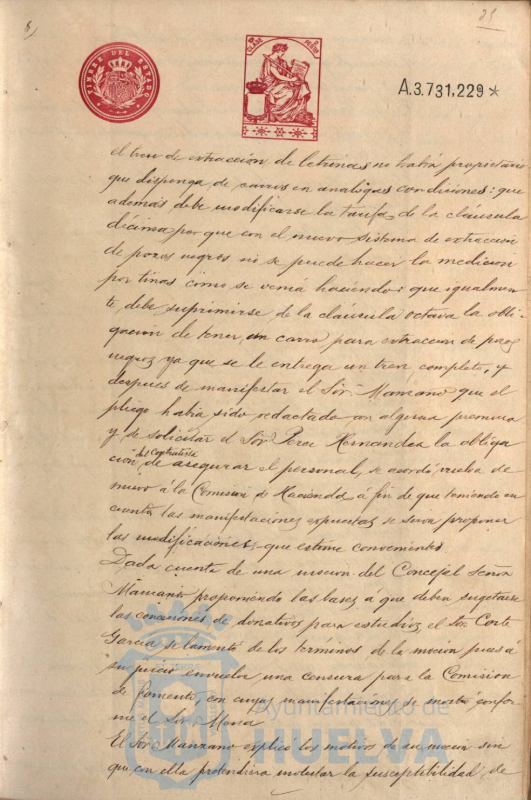 85
TIMBRE DEL ESTADO
CLASE
A.3.731,229*
el tren de extracción de letrinas no habrá propietario
que disponga de carros en análogas condiciones: que
además debe modificarse la tarifa de la cláusula
décima por que con el nuevo sistema de extracción
de pozos negros no se puede hacer la medición
por tinas como se venia haciendo: que igualmen
te debe suprimirse de la cláusula octava la obli-
gación de tener un carro para extracción de pozos
negros ya que se le entrega un tren completo, y
despues de manifestar el Sor. Manzano que el
pliego habia sido redactado con alguna premura
y de solicitar el Sor Perez Hernandez la obliga
del contratista
ción de asegurar el personal, se acordó vuelva de
nuevo á la Comision de Hacienda á fin de que teniendo en
cuenta las manifestaciones expuestas se sirva proponer
las modificaciones que estime convenientes
Dada cuenta de una mocion del Concejal Señor
Manzano proponiendo las bases a que deben sugetarse
las concesiones de donativos para estudios, el Sor. Corte
Garcia se lamenta de los términos de la moción pues a
su juicio envuelve una censura para la Comision
de Fomento, con cuyas manifestaciones se mostró confor-
me el Sor. Mora
El Sor. Manzano explicó los motivos de su mocion sin
que con ella pretendiera molestar la susceptibilidad, de
Ayuntamiento de
HUELVA